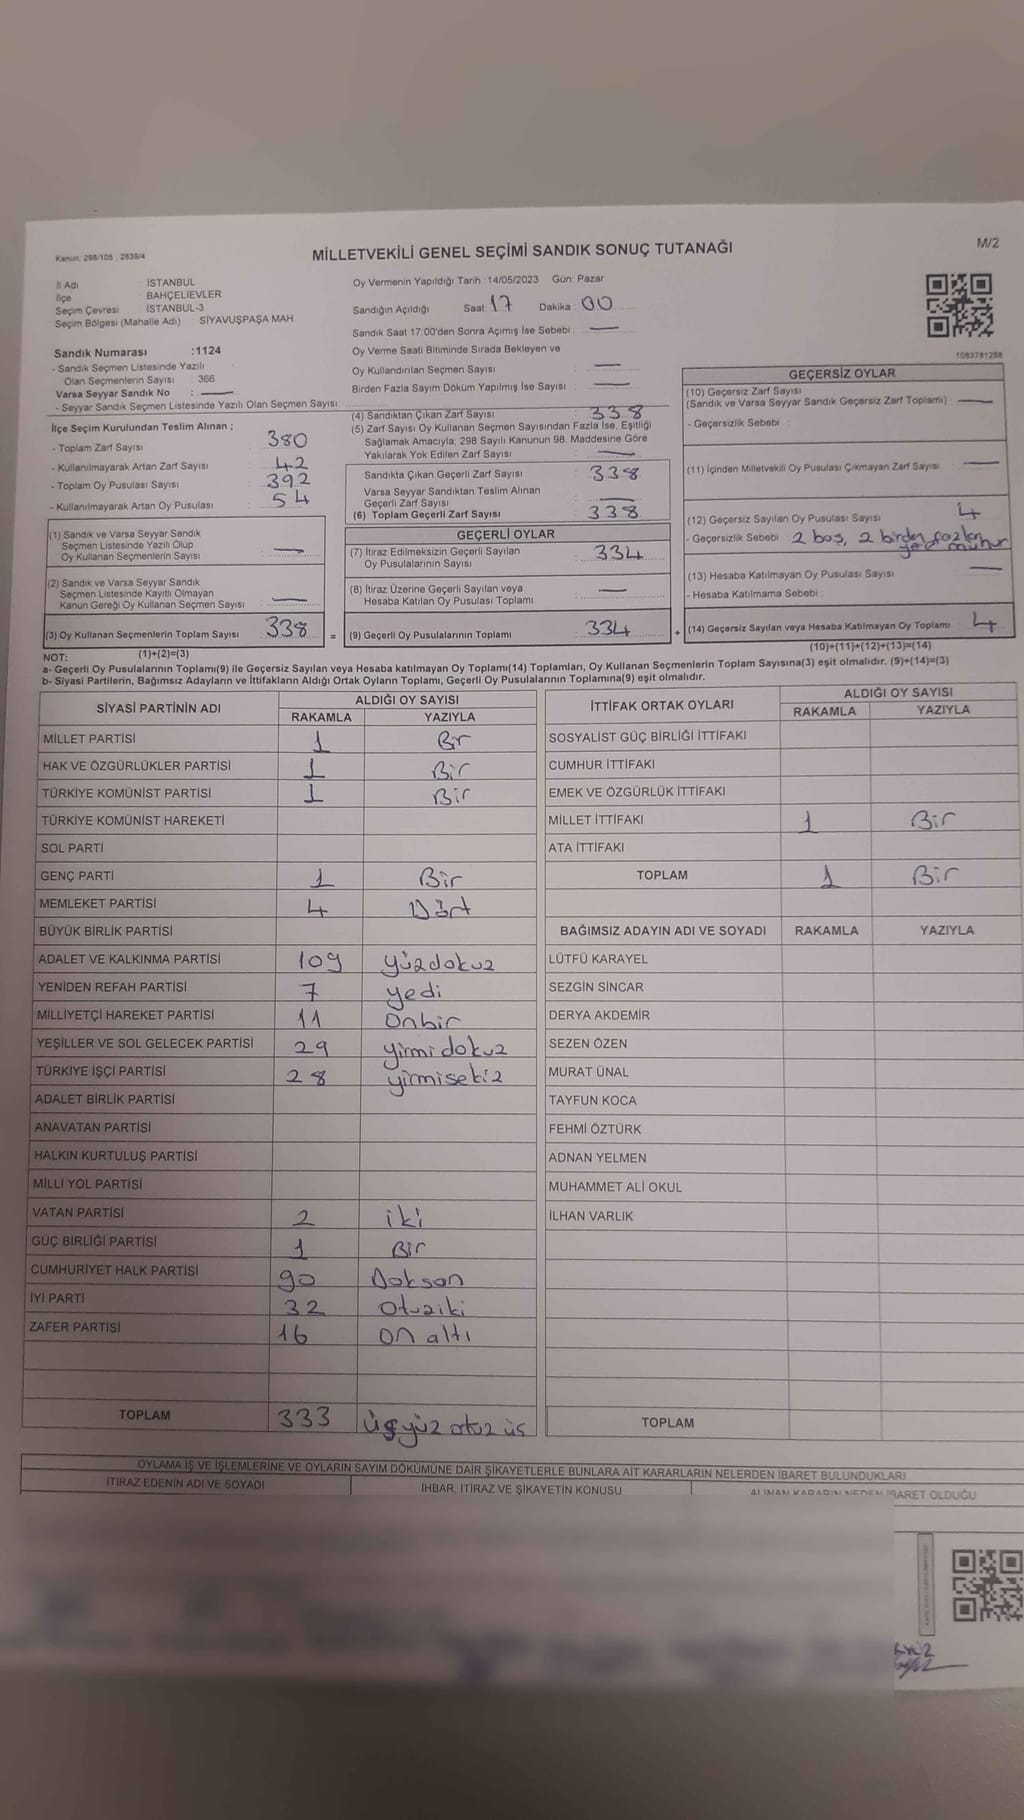 Kanun: 298/105 , 2839/4
MİLLETVEKİLİ GENEL SEÇİMİ SANDIK SONUÇ TUTANAĞI
M/2
İl Adı : İSTANBUL
İlçe : BAHÇELİEVLER
Seçim Çevresi : İSTANBUL-3
Seçim Bölgesi (Mahalle Adı) : SİYAVUŞPAŞA MAH.
Oy Vermenin Yapıldığı Tarih : 14/05/2023 Gün: Pazar
Sandığın Açıldığı Saat: 17 Dakika : 00
Sandık Saat 17:00'den Sonra Açımış İse Sebebi : —
Oy Verme Saati Bitiminde Sırada Bekleyen ve
Oy Kullandırılan Seçmen Sayısı : —
Birden Fazla Sayım Döküm Yapılmış İse Sayısı : —
1083781288
Sandık Numarası :1124
- Sandık Seçmen Listesinde Yazılı
Olan Seçmenlerin Sayısı : 366
Varsa Seyyar Sandık No : —
- Seyyar Sandık Seçmen Listesinde Yazılı Olan Seçmen Sayısı :
İlçe Seçim Kurulundan Teslim Alınan ;
- Toplam Zarf Sayısı : 380
- Kullanılmayarak Artan Zarf Sayısı : 42
- Toplam Oy Pusulası Sayısı : 392
- Kullanılmayarak Artan Oy Pusulası : 54
(1) Sandık ve Varsa Seyyar Sandık
Seçmen Listesinde Yazılı Olup
Oy Kullanan Seçmenlerin Sayısı : —
(2) Sandık ve Varsa Seyyar Sandık
Seçmen Listesinde Kayıtlı Olmayan
Kanun Gereği Oy Kullanan Seçmen Sayısı : —
(3) Oy Kullanan Seçmenlerin Toplam Sayısı : 338
(1)+(2)=(3)
(4) Sandıktan Çıkan Zarf Sayısı : 338
(5) Zarf Sayısı Oy Kullanan Seçmen Sayısından Fazla İse, Eşitliği
Sağlamak Amacıyla; 298 Sayılı Kanunun 98. Maddesine Göre
Yakılarak Yok Edilen Zarf Sayısı : —
Sandıkta Çıkan Geçerli Zarf Sayısı : 338
Varsa Seyyar Sandıktan Teslim Alınan
Geçerli Zarf Sayısı : —
(6) Toplam Geçerli Zarf Sayısı : 338
GEÇERLİ OYLAR
(7) İtiraz Edilmeksizin Geçerli Sayılan
Oy Pusulalarının Sayısı : 334
(8) İtiraz Üzerine Geçerli Sayılan veya
Hesaba Katılan Oy Pusulası Toplamı : —
= (9) Geçerli Oy Pusulalarının Toplamı : 334
GEÇERSİZ OYLAR
(10) Geçersiz Zarf Sayısı
(Sandık ve Varsa Seyyar Sandık Geçersiz Zarf Toplamı) : —
- Geçersizlik Sebebi :
(11) İçinden Milletvekili Oy Pusulası Çıkmayan Zarf Sayısı : —
(12) Geçersiz Sayılan Oy Pusulası Sayısı : 4
- Geçersizlik Sebebi : 2 boş, 2 birden fazla yere mühür
(13) Hesaba Katılmayan Oy Pusulası Sayısı : —
- Hesaba Katılmama Sebebi :
+ (14) Geçersiz Sayılan veya Hesaba Katılmayan Oy Toplamı : 4
(10)+(11)+(12)+(13)=(14)
NOT:
a- Geçerli Oy Pusulalarının Toplamı(9) ile Geçersiz Sayılan veya Hesaba katılmayan Oy Toplamı(14) Toplamları, Oy Kullanan Seçmenlerin Toplam Sayısına(3) eşit olmalıdır. (9)+(14)=(3)
b- Siyasi Partilerin, Bağımsız Adayların ve İttifakların Aldığı Ortak Oyların Toplamı, Geçerli Oy Pusulalarının Toplamına(9) eşit olmalıdır.
SİYASİ PARTİNİN ADI ALDIĞI OY SAYISI
RAKAMLA YAZIYLA
MİLLET PARTİSİ 1 Bir
HAK VE ÖZGÜRLÜKLER PARTİSİ 1 Bir
TÜRKİYE KOMÜNİST PARTİSİ 1 Bir
TÜRKİYE KOMÜNİST HAREKETİ
SOL PARTİ
GENÇ PARTİ 1 Bir
MEMLEKET PARTİSİ 4 Dört
BÜYÜK BİRLİK PARTİSİ
ADALET VE KALKINMA PARTİSİ 109 yüzdokuz
YENİDEN REFAH PARTİSİ 7 yedi
MİLLİYETÇİ HAREKET PARTİSİ 11 Onbir
YEŞİLLER VE SOL GELECEK PARTİSİ 29 yirmi dokuz
TÜRKİYE İŞÇİ PARTİSİ 28 yirmisekiz
ADALET BİRLİK PARTİSİ
ANAVATAN PARTİSİ
HALKIN KURTULUŞ PARTİSİ
MİLLİ YOL PARTİSİ
VATAN PARTİSİ 2 iki
GÜÇ BİRLİĞİ PARTİSİ 1 Bir
CUMHURİYET HALK PARTİSİ 90 Doksan
İYİ PARTİ 32 Otuziki
ZAFER PARTİSİ 16 on altı
TOPLAM 333 üçyüz otuz üç
İTTİFAK ORTAK OYLARI ALDIĞI OY SAYISI
RAKAMLA YAZIYLA
SOSYALİST GÜÇ BİRLİĞİ İTTİFAKI
CUMHUR İTTİFAKI
EMEK VE ÖZGÜRLÜK İTTİFAKI
MİLLET İTTİFAKI 1 Bir
ATA İTTİFAKI
TOPLAM 1 Bir
BAĞIMSIZ ADAYIN ADI VE SOYADI RAKAMLA YAZIYLA
LÜTFÜ KARAYEL
SEZGİN SİNCAR
DERYA AKDEMİR
SEZEN ÖZEN
MURAT ÜNAL
TAYFUN KOCA
FEHMİ ÖZTÜRK
ADNAN YELMEN
MUHAMMET ALİ OKUL
İLHAN VARLIK
TOPLAM
OYLAMA İŞ VE İŞLEMLERİNE VE OYLARIN SAYIM DÖKÜMÜNE DAİR ŞİKAYETLERLE BUNLARA AİT KARARLARIN NELERDEN İBARET BULUNDUKLARI
İTİRAZ EDENİN ADI VE SOYADI İHBAR, İTİRAZ VE ŞİKAYETİN KONUSU ALINAN KARARIN NEDEN İBARET OLDUĞU